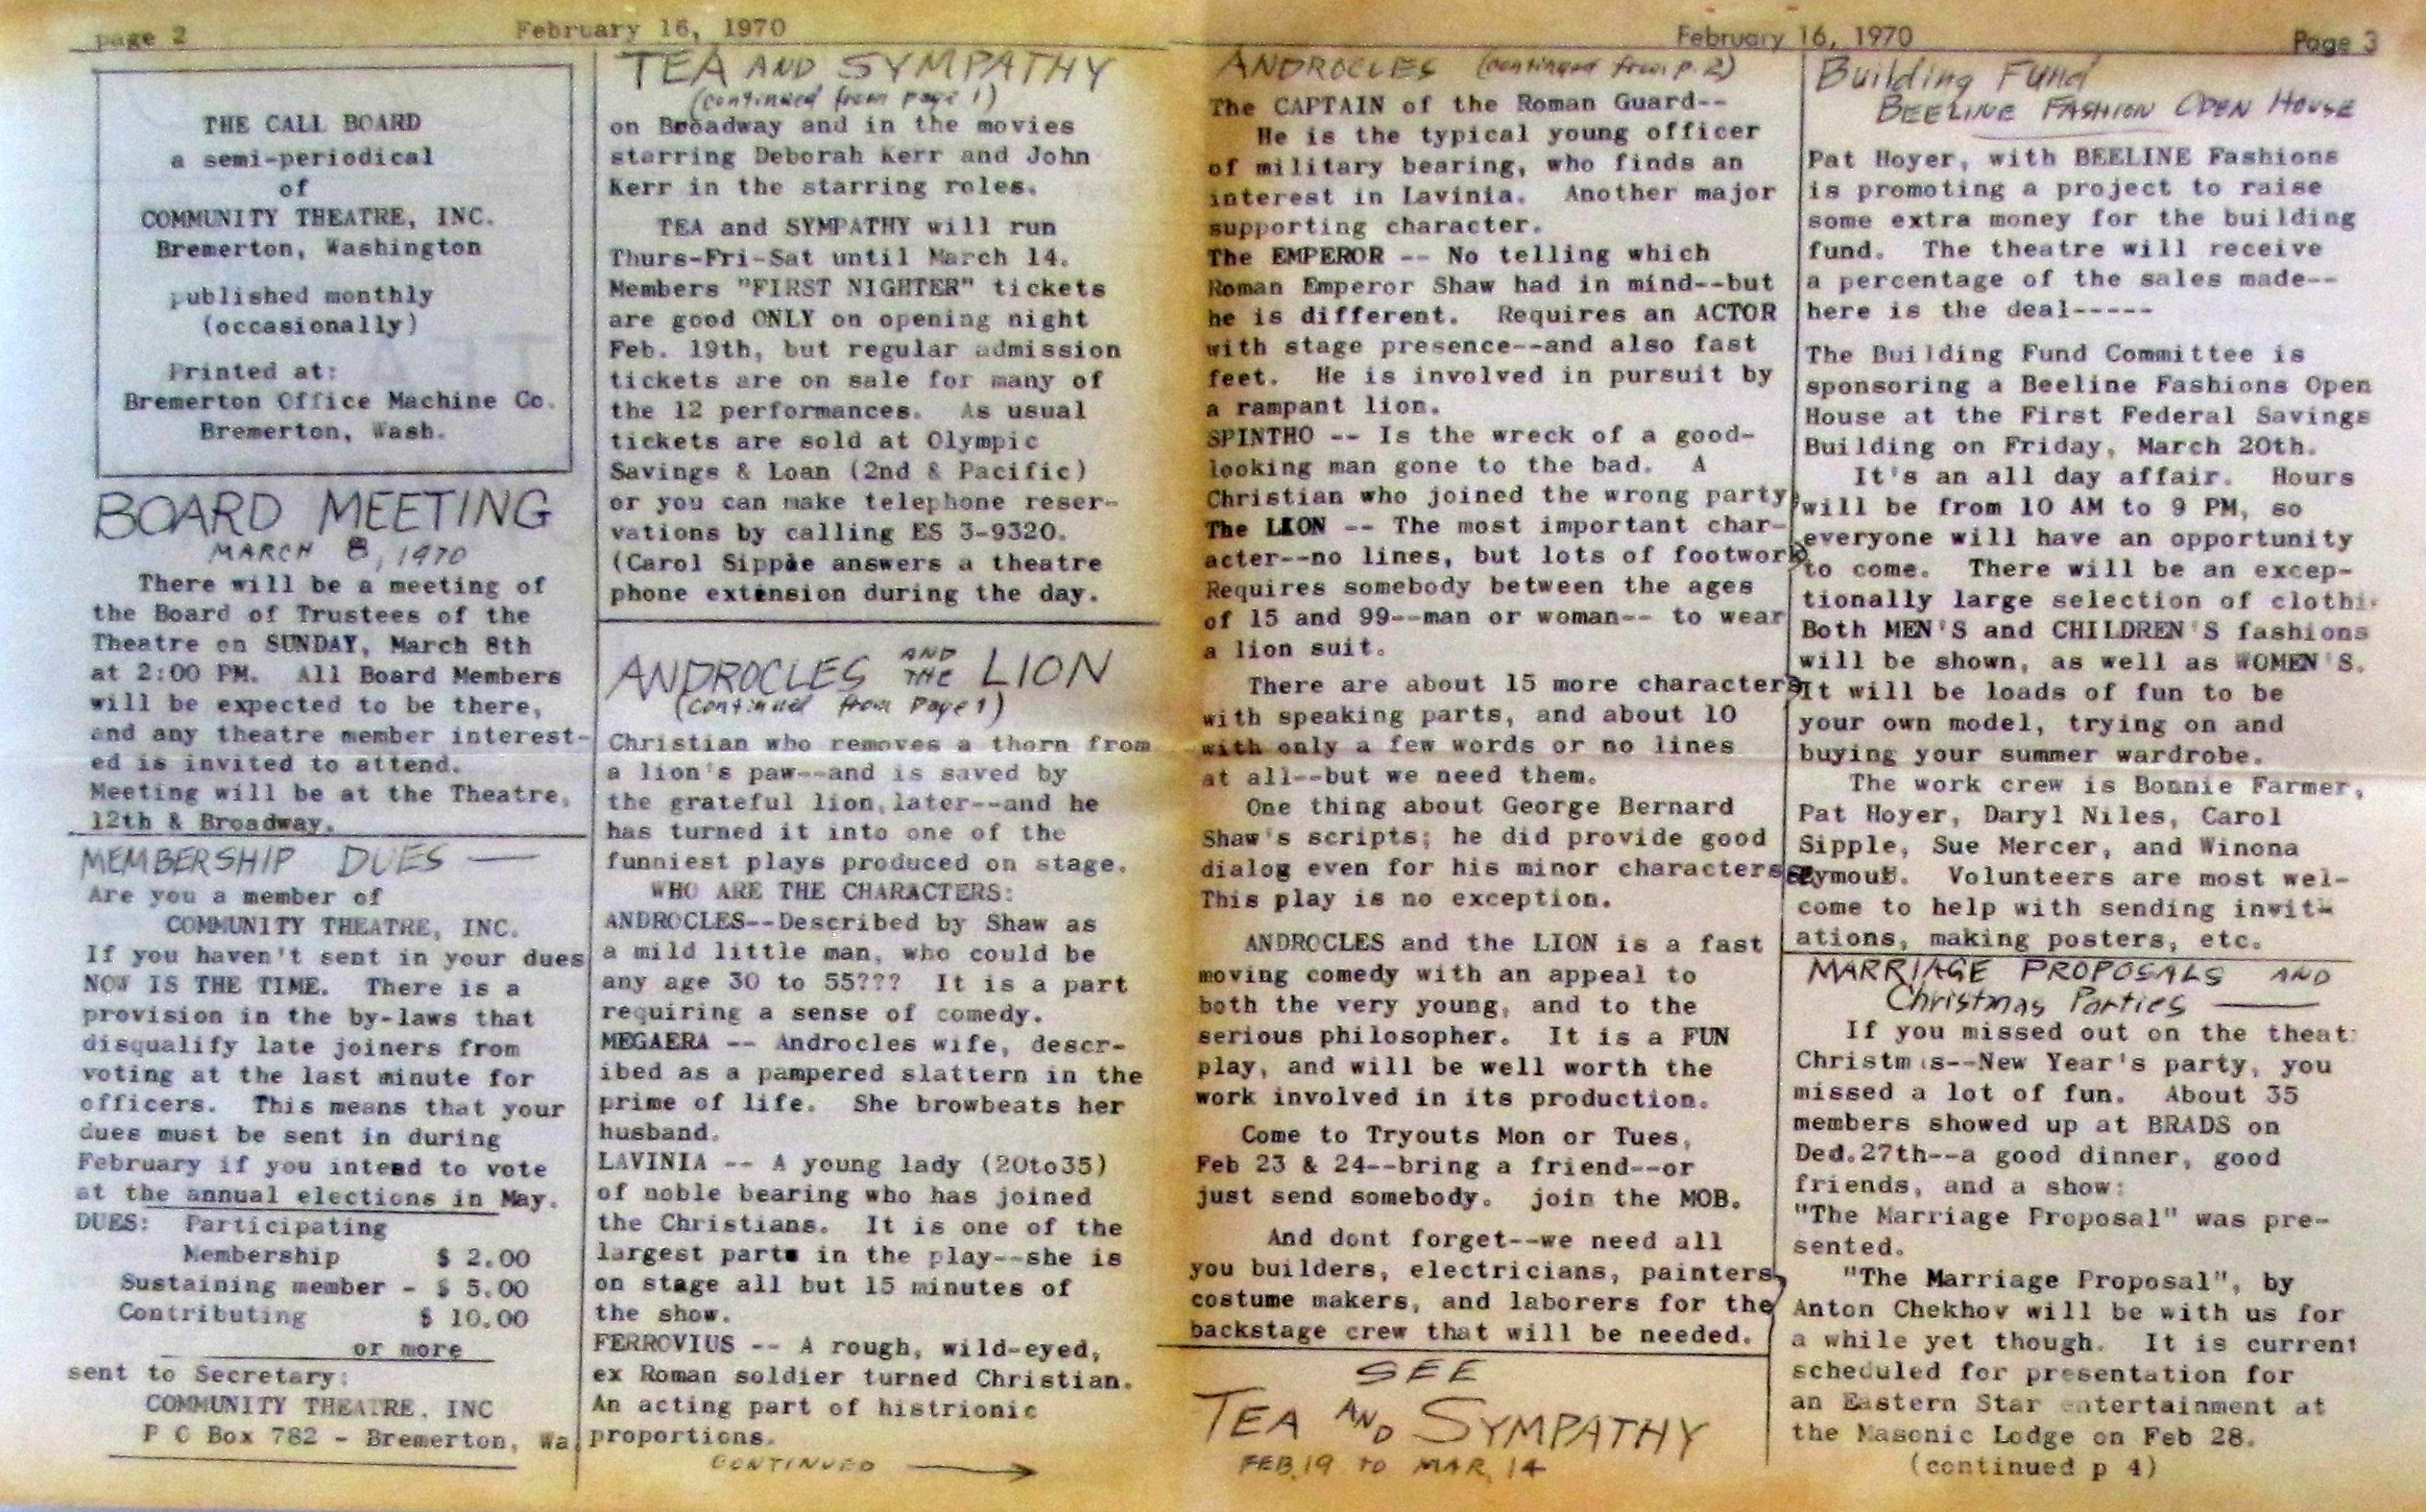 page 2
February 16, 1970
THE CALL BOARD
a semi-periodical
of
COMMUNITY THEATRE, INC.
Bremerton, Washington
published monthly
(occasionally)
Printed at:
Bremerton Office Machine Co.
Bremerton, Wash.
BOARD MEETING
MARCH 8, 1970
There will be a meeting of
the Board of Trustees of the
Theatre on SUNDAY, March 8th
at 2:00 PM. All Board Members
will be expected to be there,
and any theatre member interest-
ed is invited to attend.
Meeting will be at the Theatre,
12th & Broadway.
MEMBERSHIP DUES —
Are you a member of
COMMUNITY THEATRE, INC.
If you haven't sent in your dues
NOW IS THE TIME. There is a
provision in the by-laws that
disqualify late joiners from
voting at the last minute for
officers. This means that your
dues must be sent in during
February if you intend to vote
at the annual elections in May.
DUES: Participating
Membership $ 2.00
Sustaining member - $ 5.00
Contributing $ 10.00
or more
sent to Secretary:
COMMUNITY THEATRE, INC
P O Box 782 - Bremerton, Wa
TEA AND SYMPATHY
(continued from page 1)
on Broadway and in the movies
starring Deborah Kerr and John
Kerr in the starring roles.
TEA and SYMPATHY will run
Thurs-Fri-Sat until March 14.
Members "FIRST NIGHTER" tickets
are good ONLY on opening night
Feb. 19th, but regular admission
tickets are on sale for many of
the 12 performances. As usual
tickets are sold at Olympic
Savings & Loan (2nd & Pacific)
or you can make telephone reser-
vations by calling ES 3-9320.
(Carol Sipple answers a theatre
phone extension during the day.
ANDROCLES AND THE LION
(continued from page 1)
Christian who removes a thorn from
a lion's paw--and is saved by
the grateful lion,later--and he
has turned it into one of the
funniest plays produced on stage.
WHO ARE THE CHARACTERS:
ANDROCLES--Described by Shaw as
a mild little man, who could be
any age 30 to 55??? It is a part
requiring a sense of comedy.
MEGAERA -- Androcles wife, descr-
ibed as a pampered slattern in the
prime of life. She browbeats her
husband.
LAVINIA -- A young lady (20to35)
of noble bearing who has joined
the Christians. It is one of the
largest parts in the play--she is
on stage all but 15 minutes of
the show.
FERROVIUS -- A rough, wild-eyed,
ex Roman soldier turned Christian.
An acting part of histrionic
proportions.
CONTINUED
February 16, 1970
Page 3
ANDROCLES (continued from p. 2)
The CAPTAIN of the Roman Guard--
He is the typical young officer
of military bearing, who finds an
interest in Lavinia. Another major
supporting character.
The EMPEROR -- No telling which
Roman Emperor Shaw had in mind--but
he is different. Requires an ACTOR
with stage presence--and also fast
feet. He is involved in pursuit by
a rampant lion.
SPINTHO -- Is the wreck of a good-
looking man gone to the bad. A
Christian who joined the wrong party.
The LION -- The most important char-
acter--no lines, but lots of footwork
Requires somebody between the ages
of 15 and 99--man or woman-- to wear
a lion suit.
There are about 15 more characters
with speaking parts, and about 10
with only a few words or no lines
at all--but we need them.
One thing about George Bernard
Shaw's scripts; he did provide good
dialog even for his minor characters
This play is no exception.
ANDROCLES and the LION is a fast
moving comedy with an appeal to
both the very young, and to the
serious philosopher. It is a FUN
play, and will be well worth the
work involved in its production.
Come to Tryouts Mon or Tues,
Feb 23 & 24--bring a friend--or
just send somebody. join the MOB.
And dont forget--we need all
you builders, electricians, painters,
costume makers, and laborers for the
backstage crew that will be needed.
SEE
TEA AND SYMPATHY
FEB. 19 TO MAR. 14
Building Fund
BEELINE FASHION OPEN HOUSE
Pat Hoyer, with BEELINE Fashions
is promoting a project to raise
some extra money for the building
fund. The theatre will receive
a percentage of the sales made--
here is the deal-----
The Building Fund Committee is
sponsoring a Beeline Fashions Open
House at the First Federal Savings
Building on Friday, March 20th.
It's an all day affair. Hours
will be from 10 AM to 9 PM, so
everyone will have an opportunity
to come. There will be an excep-
tionally large selection of clothi
Both MEN'S and CHILDREN'S fashions
will be shown, as well as WOMEN'S.
It will be loads of fun to be
your own model, trying on and
buying your summer wardrobe.
The work crew is Bonnie Farmer,
Pat Hoyer, Daryl Niles, Carol
Sipple, Sue Mercer, and Winona
Volunteers are most wel-
come to help with sending invit-
ations, making posters, etc.
MARRIAGE PROPOSALS AND
Christmas Parties —
If you missed out on the theat
Christmas--New Year's party, you
missed a lot of fun. About 35
members showed up at BRADS on
Ded.27th--a good dinner, good
friends, and a show:
"The Marriage Proposal" was pre-
sented.
"The Marriage Proposal", by
Anton Chekhov will be with us for
a while yet though. It is current
scheduled for presentation for
an Eastern Star entertainment at
the Masonic Lodge on Feb 28.
(continued p 4)